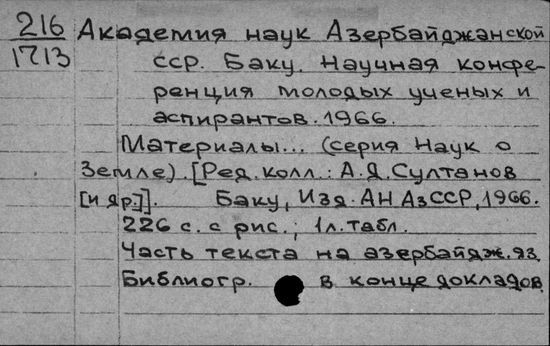 216 Академия наук Азербайджанской
1713 ССР. Баку. Научная конфе-
ренция молодых ученых и
аспирантов. 1966.
Материалы... (серия Наук о
Земле). [Ред. колл.: А.Д. Султанов
[и др.]]. Баку, Изд. АН АзССР, 1966.
226 с. с рис.; 1 л. табл.
Часть текста на азербайдж. яз.
Библиогр. в конце докладов.